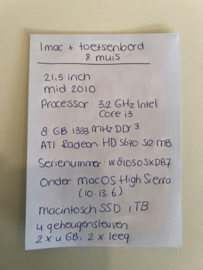 1mac + toetsenbord
& muis
21,5 inch
mid 2010
Processor 3.2 GHz Intel
Core i3
8 GB 1333 MHz DDR3
ATI Radeon HD 5670 512 MB
Serienummer
Onder macOS High Sierra
(10.13.6)
macintosch SSD 1TB
4 geheugensleuven
2 x 4 GB, 2 x leeg